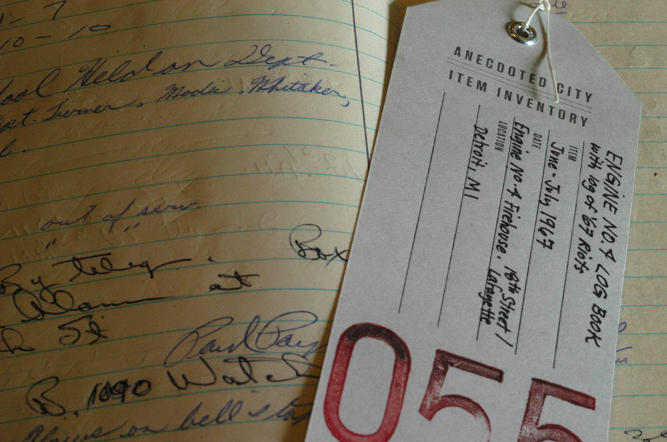 - 7
10 - 10
ool Held on Dept.
Turner, Modic, Whitaker,
out of serv
" " "
By teleg. Box
Alarm at
St
B. 1090 Watch
on bell
ANECDOTED CITY
ITEM INVENTORY
ITEM
ENGINE NO. 4 LOG BOOK
with log of 67 Riots
DATE
June - July 1967
LOCATION
Engine No. 4 Firehouse, 18th Street /
Lafayette
Detroit, MI
055